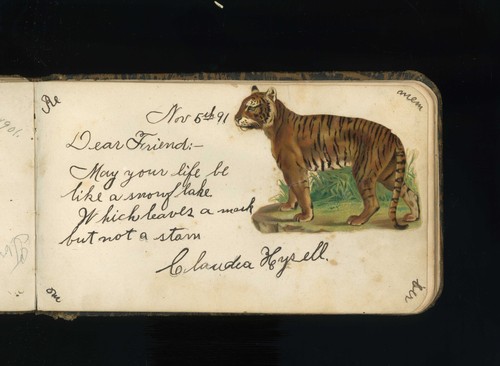 Re
mem
Nov 5th 91
Dear Friend:-
May your life be
like a snowflake
Which leaves a mark
but not a stain
Claudia Hysell.
me
1901.